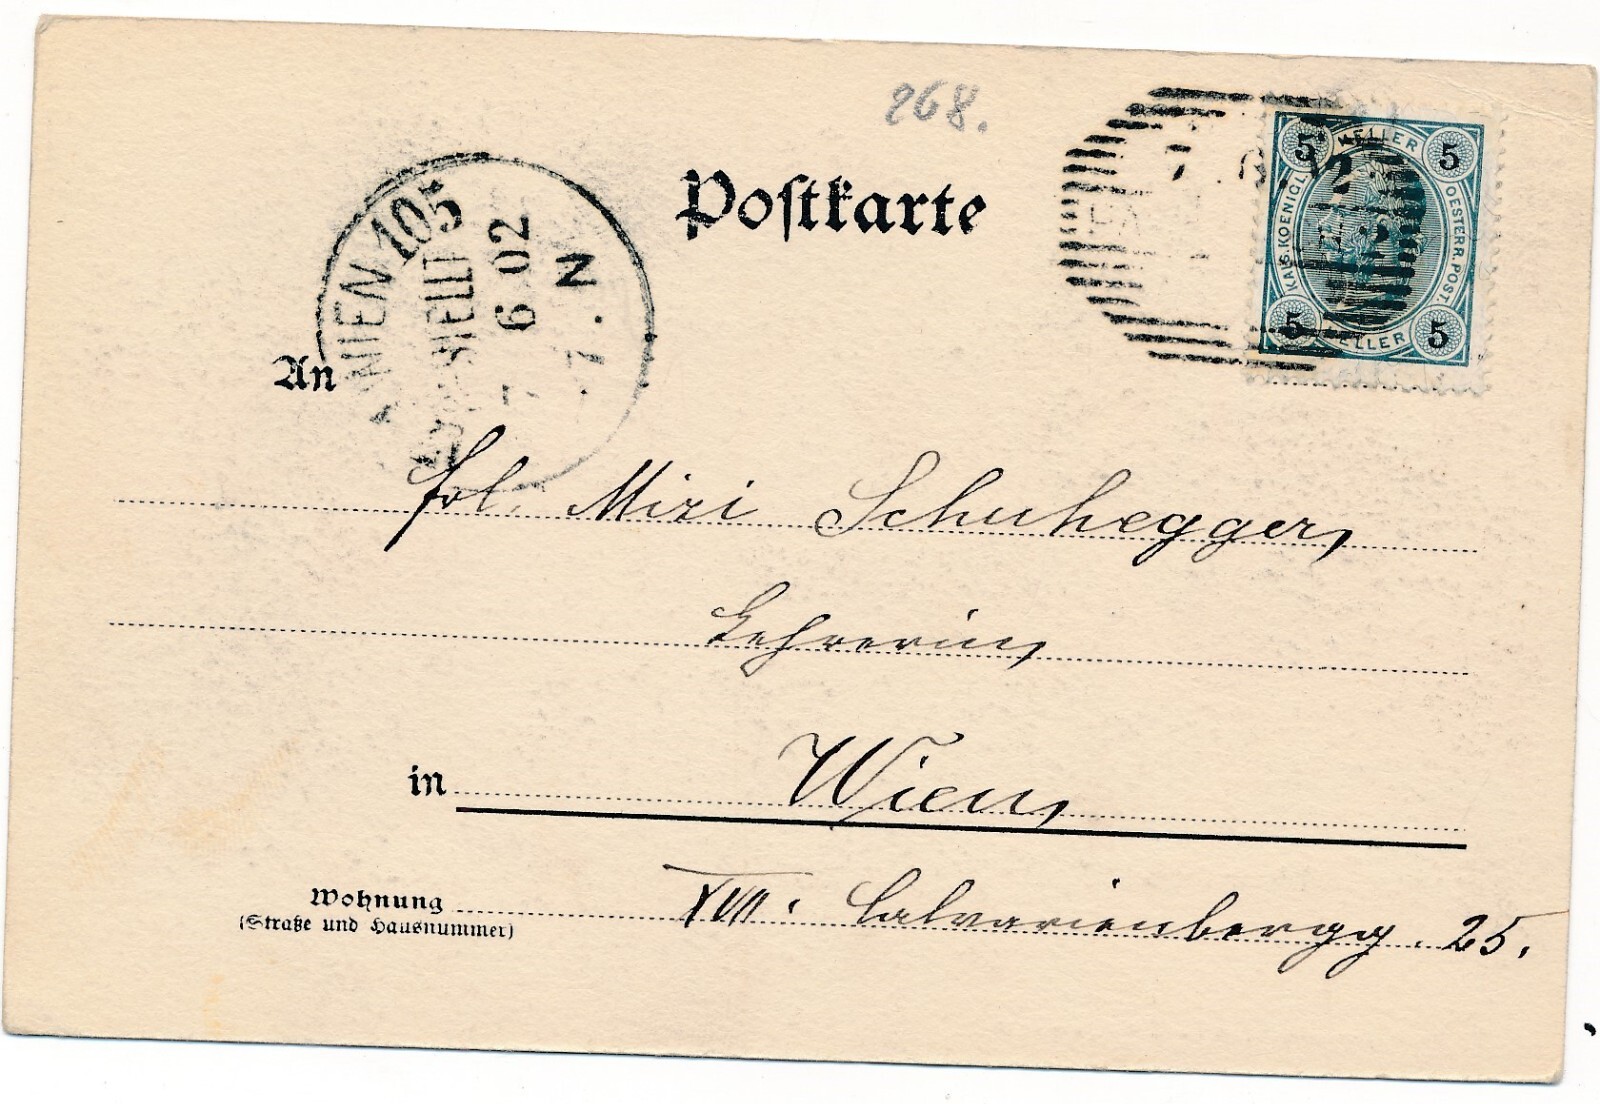 268.
Postkarte
5 HELLER 5
KAIS. KOENIGL. OESTERR. POST.
5 HELLER 5
WIEN 105
7 6 02
7. N
An
Frl. Mizi Schuhegger,
Lehrerin,
in Wien,
Wohnung XVII. Calvarienbergg. 25.
(Straße und Hausnummer)